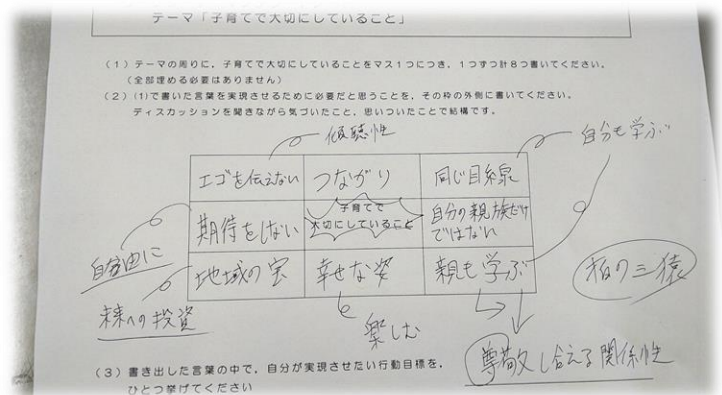 テーマ「子育てで大切にしていること」
(1) テーマの周りに，子育てで大切にしていることをマス1つにつき，1つずつ計8つ書いてください。
(全部埋める必要はありません)
(2) (1)で書いた言葉を実現させるために必要だと思うことを，その枠の外側に書いてください。
ディスカッションを聞きながら気づいたこと，思いついたことで結構です。
自分も学ぶ
エゴを伝えない
つながり
同じ目線
期待をしない
子育てで
大切にしていること
自分の親族だけ
ではない
自分由に
地域の宝
幸せな姿
親も学ぶ
未来への投資
楽しむ
尊敬し合える関係性
(3) 書き出した言葉の中で，自分が実現させたい行動目標を，
ひとつ挙げてください